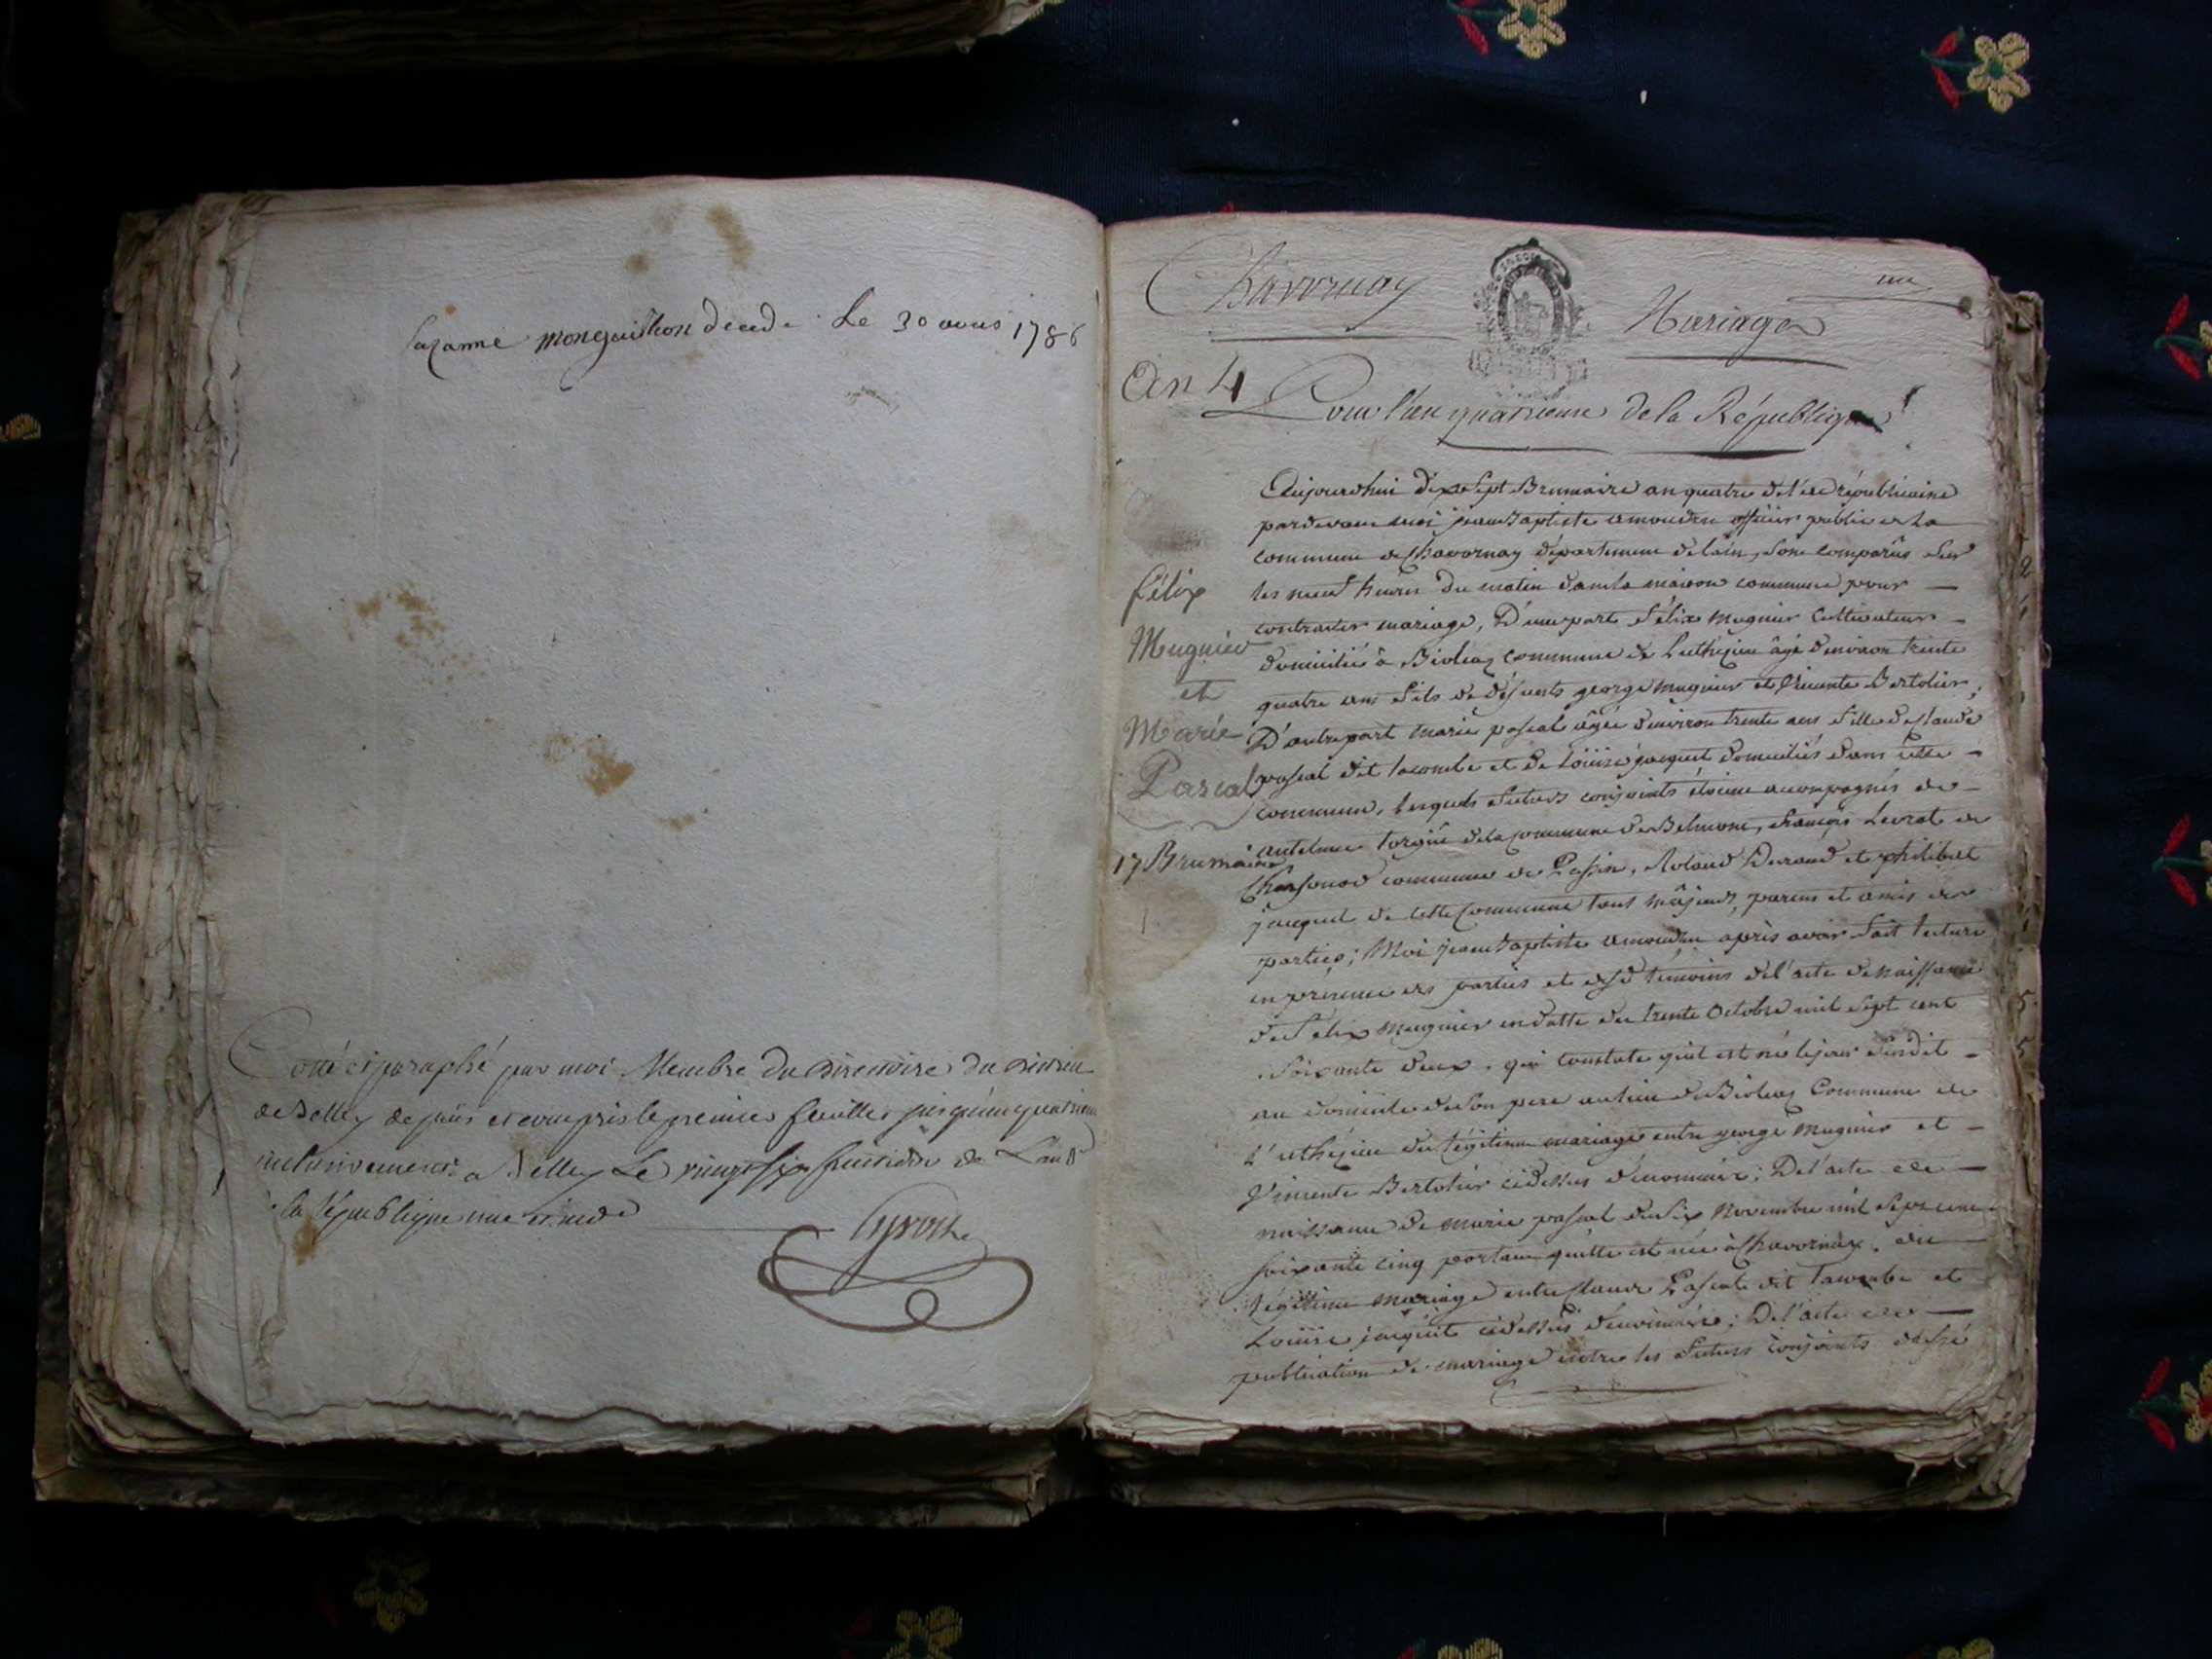 Lazanne monguilhon decede Le 30 aous 1786
Coté et paraphé par moi Membre du Directoire du District
de Belley depuis et compris le premier feuillet jusqu'au quatrieme
inclusivement a Belley Le vingt six fructidor de L'an 3e
de la République une et indle
un
Chavornay
Mariages
An 4
Pour l'an quatrieme de la République
félix
Mugnier
et
Marie
Pascal
17 Brumaire
Aujourdhui dix Sept Brumaire an quatre de l'ere républicaine
pardevant moi jean Baptiste amoudru officier public de la
commune de Chavornay département de l'ain, Sont comparûs Sur
les neuf heures du matin dans la maison commune pour
contracter mariage, D'une part félix mugnier Cultivateur
domicilié à Bioleaz commune de Luthézieu âgé d'environ trente
quatre ans fils de défunts george mugnier et Vincente Bertolier;
D'autre part marie pascal âgée d'environ trente ans fille de claude
pascal dit lacombe et de Loüise jacquet domiciliés dans cette
commune, lesquels futurs conjoints étoient accompagnés de
antelme torgûe de la commune de Belmont, françois Levrat de
Chonsonod commune de Passin, Roland Durand et philibert
jacquet de cette Commune tous majeurs, parens et amis des
parties; Moi jean Baptiste amoudru après avoir fait lecture
en présence des parties et desd témoins de l'acte de naissance
de Felix mugnier en datte du trente Octobre mil Sept cent
Soixante deux, qui constate qu'il est né le jour susdit
au domicile de Son pere au lieu de Bioleaz Commune de
Luthézieu du légitime mariage entre george mugnier et
Vincente Bertolier cidessus dénommés; De l'acte de
naissance de marie pascal du Six Novembre mil Sept cent
Soixante cinq portant qu'elle est née à Chavornay, du
légitime mariage entre Claude Pascal dit Lacombe et
Loüise jacquet cidessus dénommés; De l'acte de
publication de mariage entre les futurs conjoints